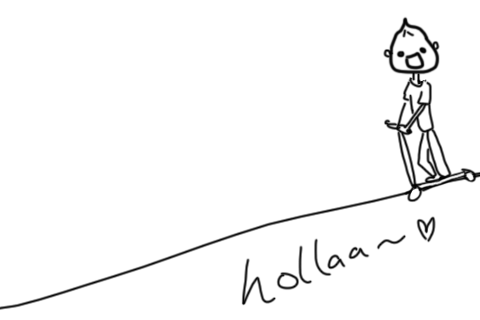 hollaa~♡